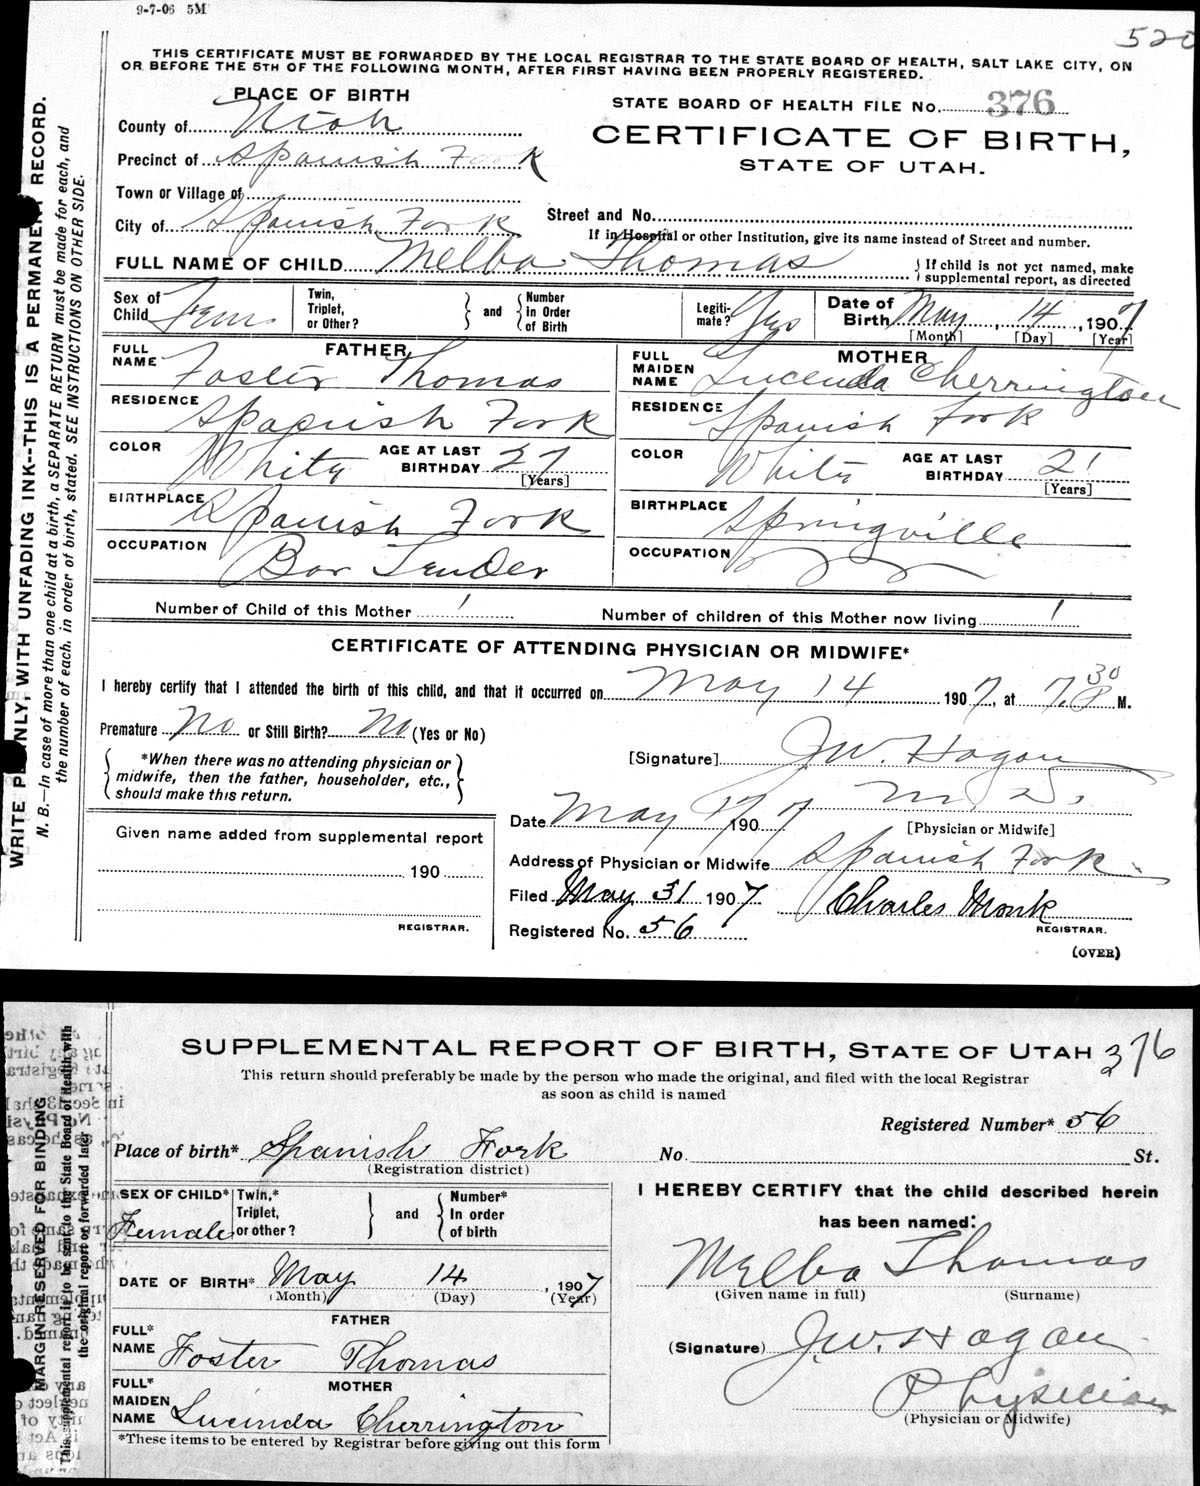 9-7-06 5M
520
THIS CERTIFICATE MUST BE FORWARDED BY THE LOCAL REGISTRAR TO THE STATE BOARD OF HEALTH, SALT LAKE CITY, ON
OR BEFORE THE 5TH OF THE FOLLOWING MONTH, AFTER FIRST HAVING BEEN PROPERLY REGISTERED.
PLACE OF BIRTH
STATE BOARD OF HEALTH FILE No. 376
County of Utah
CERTIFICATE OF BIRTH,
Precinct of Spanish Fork
STATE OF UTAH.
Town or Village of
City of Spanish Fork
Street and No.
If in Hospital or other Institution, give its name instead of Street and number.
FULL NAME OF CHILD Melba Thomas
If child is not yet named, make
supplemental report, as directed
Sex of Child Fem
Twin, Triplet, or Other?
and
Number in Order of Birth
Legiti-mate? Yes
Date of Birth May, 14, 1907
[Month] [Day] [Year]
FATHER
FULL NAME Foster Thomas
RESIDENCE Spanish Fork
COLOR White
AGE AT LAST BIRTHDAY 27
[Years]
BIRTHPLACE Spanish Fork
OCCUPATION Bar Tender
MOTHER
FULL MAIDEN NAME Lucenda Cherrington
RESIDENCE Spanish Fork
COLOR White
AGE AT LAST BIRTHDAY 21
[Years]
BIRTHPLACE Springville
OCCUPATION
Number of Child of this Mother 1
Number of children of this Mother now living 1
CERTIFICATE OF ATTENDING PHYSICIAN OR MIDWIFE*
I hereby certify that I attended the birth of this child, and that it occurred on May 14 1907, at 7.30 P M.
Premature No or Still Birth? No (Yes or No)
*When there was no attending physician or
midwife, then the father, householder, etc.,
should make this return.
[Signature] J.W. Hagan
M.D.
[Physician or Midwife]
Date May 17 1907
Address of Physician or Midwife Spanish Fork
Filed May 31 1907
Charles Monk
REGISTRAR.
Registered No. 56
(OVER)
Given name added from supplemental report
190
REGISTRAR.
WRITE PLAINLY, WITH UNFADING INK--THIS IS A PERMANENT RECORD.
N. B.—In case of more than one child at a birth, a SEPARATE RETURN must be made for each, and
the number of each, in order of birth, stated. SEE INSTRUCTIONS ON OTHER SIDE.
SUPPLEMENTAL REPORT OF BIRTH, STATE OF UTAH 376
This return should preferably be made by the person who made the original, and filed with the local Registrar
as soon as child is named
Registered Number* 56
Place of birth* Spanish Fork
(Registration district)
No. St.
SEX OF CHILD* Female
Twin,* Triplet, or other?
and
Number* In order of birth
DATE OF BIRTH* May 14, 1907
(Month) (Day) (Year)
FATHER
FULL* NAME Foster Thomas
MOTHER
FULL* MAIDEN NAME Lucinda Cherrington
*These items to be entered by Registrar before giving out this form
I HEREBY CERTIFY that the child described herein
has been named:
Melba Thomas
(Given name in full) (Surname)
(Signature) J.W. Hagan
Physician
(Physician or Midwife)
MARGIN RESERVED FOR BINDING
This supplemental report is to be sent to the State Board of Health with
the original report or forwarded later